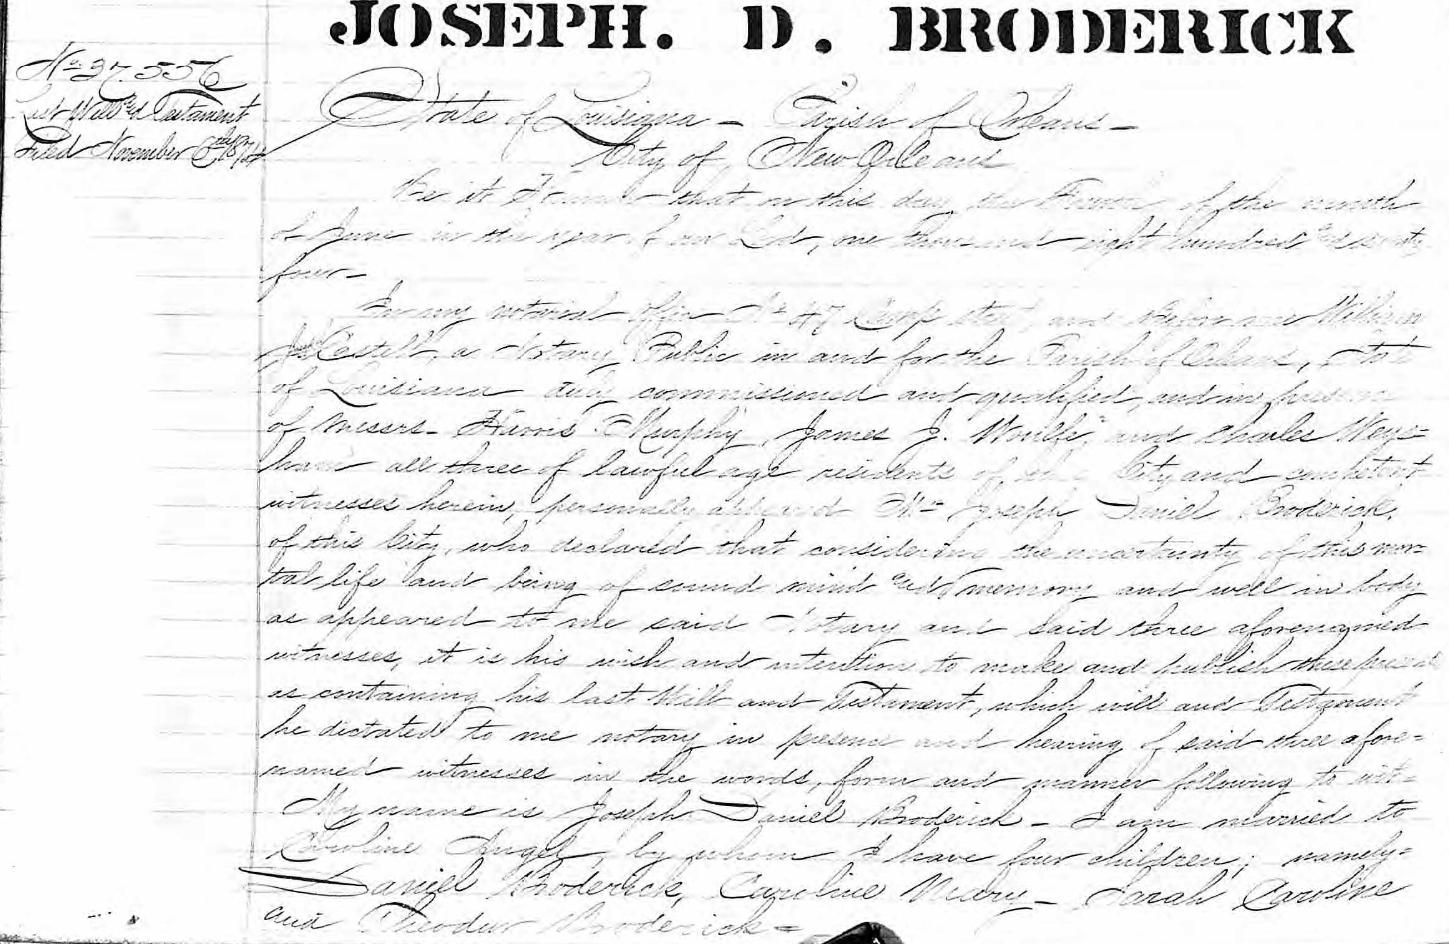 JOSEPH. D. BRODERICK
No. 37.556
Last Will & Testament
Filed November
State of Louisiana - Parish of Orleans -
City of New Orleans
Be it Known that on this day the Fourth of the month
of June in the year of our Lord, one thousand eight hundred and seventy
four -
In my notarial office No 47 Camp street, and before me William
J. Castell, a Notary Public in and for the Parish of Orleans, State
of Louisiana duly commissioned and qualified, and in presence
of Messrs - Harris Murphy, James J. Woulfe, and Charles Weys=
ham all three of lawful age residents of this City and competent
witnesses herein, personally appeared Mr Joseph Daniel Broderick,
of this City, who declared that considering the uncertainty of this mor=
tal life and being of sound mind and memory and well in body
as appeared to me said Notary and said three aforenamed
witnesses, it is his wish and intention to make and publish these presents
as containing his last Will and Testament, which will and Testament
he dictated to me notary in presence and hearing of said three afore=
named witnesses in the words, form and manner following to wit=
My name is Joseph Daniel Broderick - I am married to
Caroline Angel, by whom I have four children; namely=
Daniel Broderick, Caroline Mary - Sarah Caroline
and Theodur Broderick =